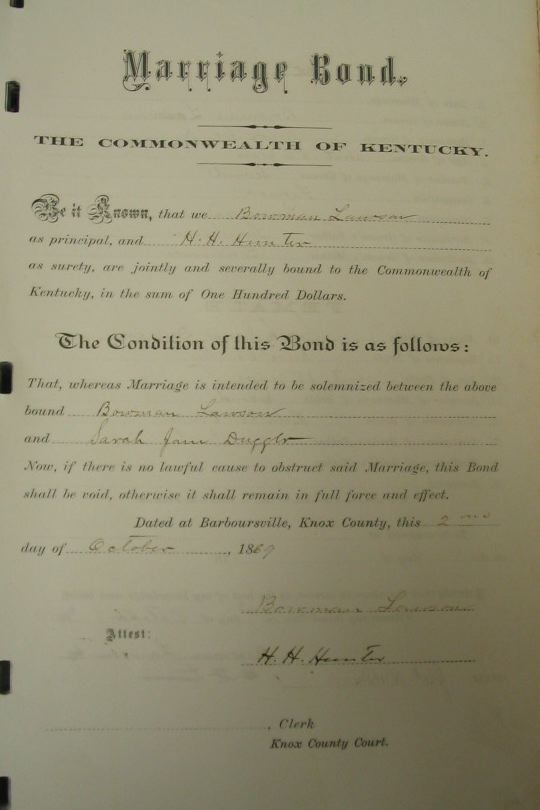 Marriage Bond.
THE COMMONWEALTH OF KENTUCKY.
Be it Known, that we Bowman Lawson
as principal, and H. H. Hunter
as surety, are jointly and severally bound to the Commonwealth of
Kentucky, in the sum of One Hundred Dollars.
The Condition of this Bond is as follows:
That, whereas Marriage is intended to be solemnized between the above
bound Bowman Lawson
and Sarah Jane
Now, if there is no lawful cause to obstruct said Marriage, this Bond
shall be void, otherwise it shall remain in full force and effect.
Dated at Barboursville, Knox County, this 2nd
day of October, 1869
Bowman Lawson
Attest:
H. H. Hunter
, Clerk
Knox County Court.